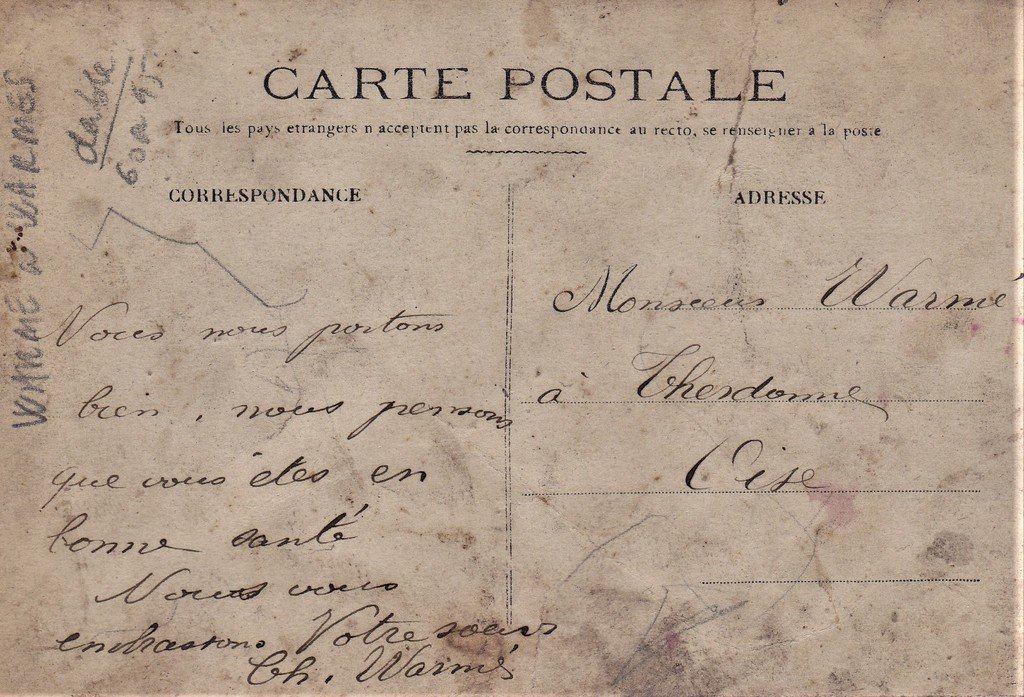 CARTE POSTALE
Tous les pays etrangers n acceptent pas la correspondance au recto, se renseigner a la poste
CORRESPONDANCE
Nous nous portons
bien, nous pensons
que vous êtes en
bonne santé
Nous vous
embrassons Votre soeur
Ch. Warmé
ADRESSE
Monsieur Warmé
à Therdonne
Oise
WARME a WARMES
60 a 95